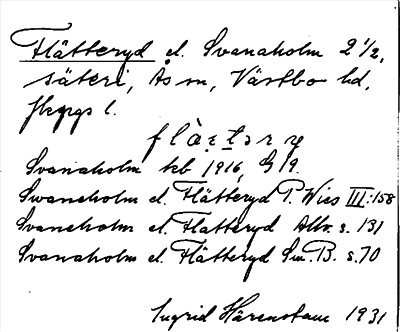 Flätteryd el. Svanaholm 2 1/2,
säteri, Ås sn, Västbo hd,
Jkpgs l.
flä̀t̯əry
Svanaholm kb 1916, G 19.
Swaneholm el. Flätteryd P. Wies III:158
Svaneholm el. Flatteryd Allv. s. 131
Svanaholm el. Flätteryd Sm. B. s. 70
Ingrid Härenstam 1931